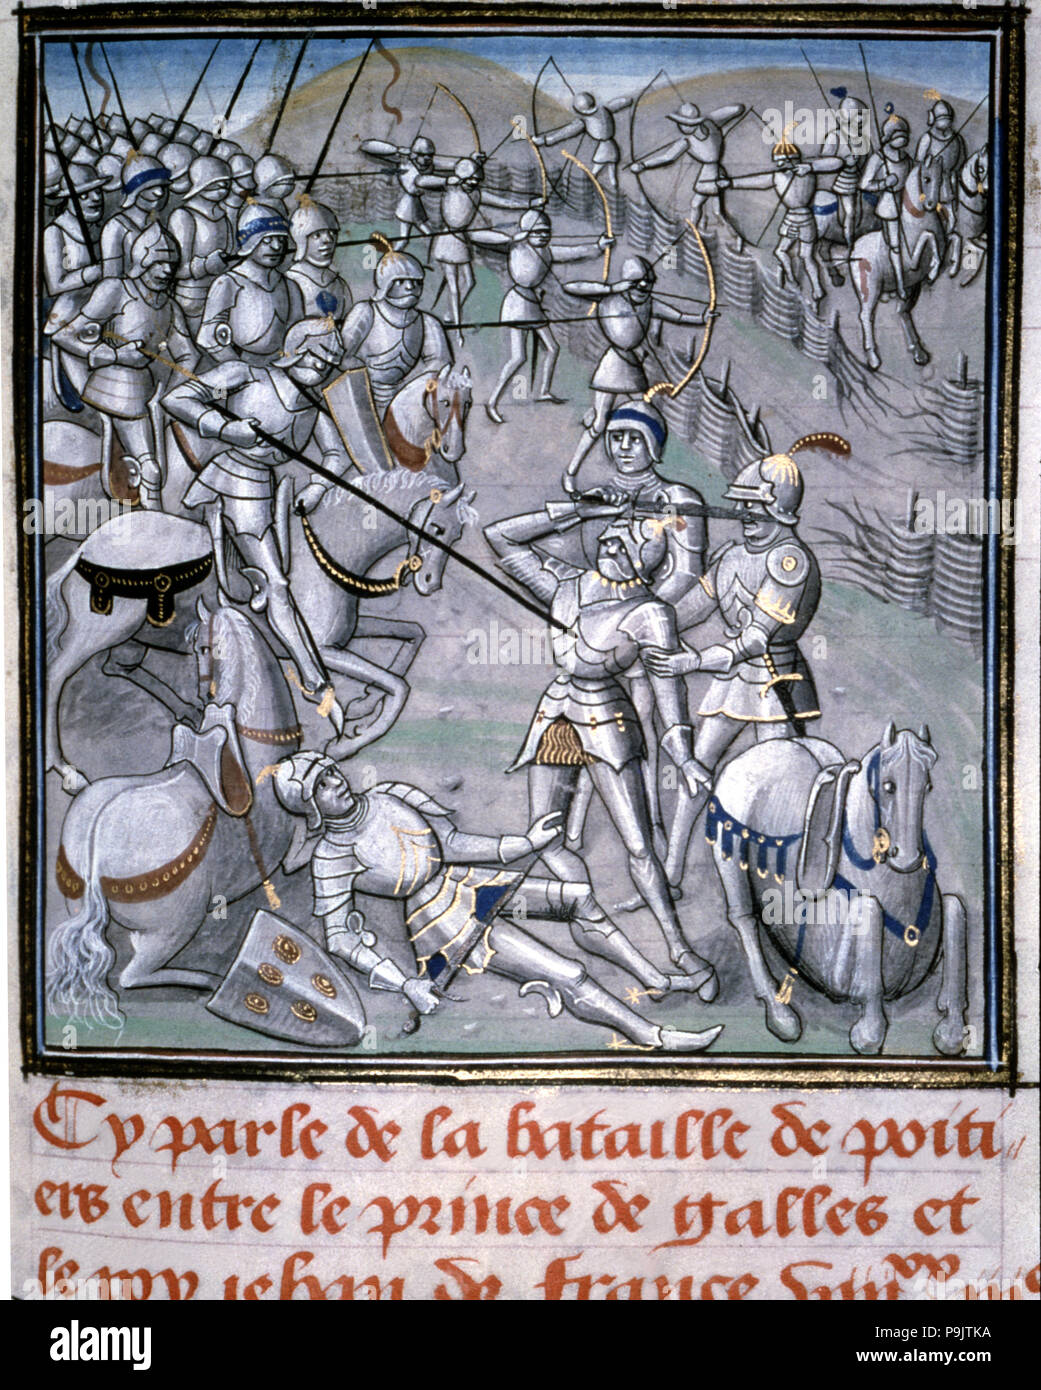 Cy parle de la bataille de poiti
ers entre le prince de galles et
le roy jehan de france
alamy
Image ID: P9JTKA
www.alamy.com